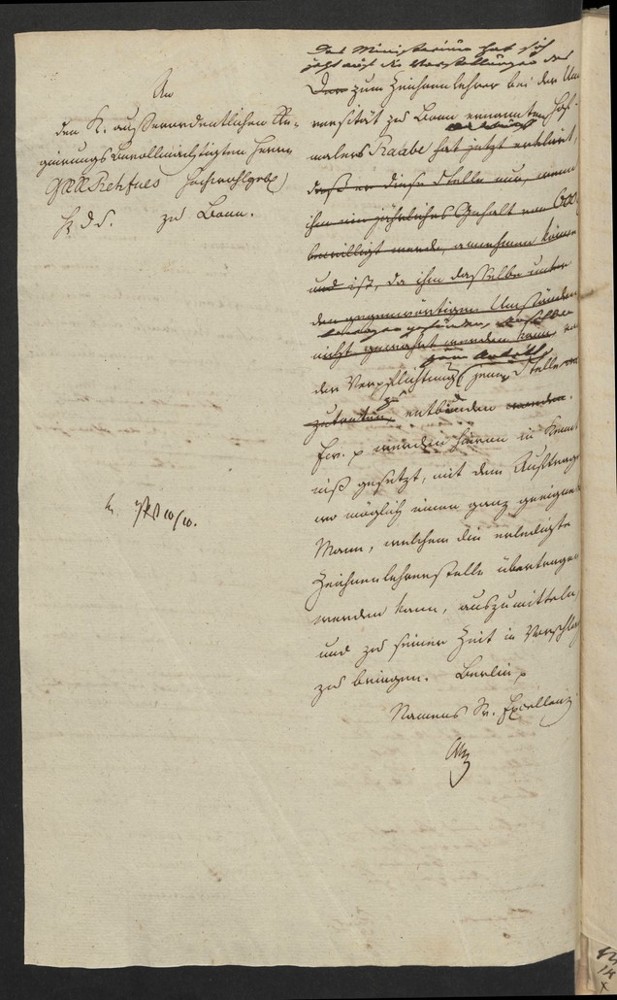 An
den K. außerordentlichen Re-
gierungsbevollmächtigten Herrn
Rehfues Hochwohlgeb.
zu Bonn.
Das Ministerium hat sich
jetzt auf die Vorstellungen des
Der zum Zeichnenlehrer bei der Uni
versität zu Bonn ernannten Hof-
malers Raabe hat jetzt erklärt,
daß er diese Stelle nur, wenn
ihm ein jährliches Gehalt von 600
bewilligt werde, annehmen könne
und ist, da ihm dasselbe unter
den gegenwärtigen Umständen
bewogen gefunden, denselben
nicht gewährt werden kann, von
zum Antritt
der Verpflichtung jener Stelle
zu
anzutreten, entbinden worden.
Ew. p werden hievon in Kennt-
niß gesetzt, mit dem Auftrage
wo möglich einen ganz geeigneten
Mann, welchem die erledigte
Zeichnenlehrerstelle übertragen
werden kann, auszumitteln,
und zu seiner Zeit in Vorschlag
zu bringen. Berlin p
Namens Sr. Excellenz